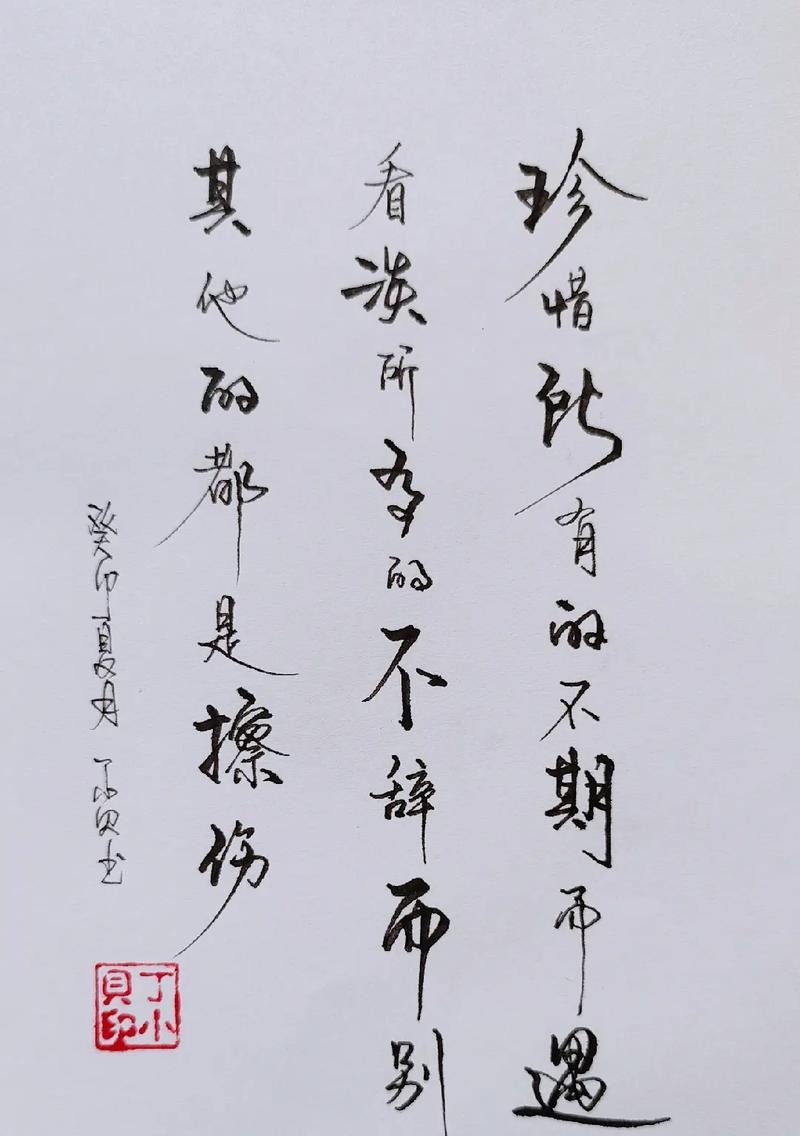 珍惜所有的不期而遇
看淡所有的不辞而别
其他的都是擦伤
癸卯夏月 丁小贝书
丁小貝印